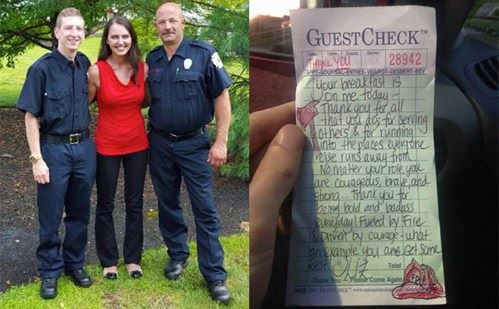 GUESTCHECK™
Date Table Guests Server
THANK YOU 28942
APPT-SOUP/SAL-ENTREE-VEG/POT-DESSERT-BEV
Your breakfast is
On me today -
Thank you for all
that you do; for serving
others & for running
into the places everyone
else runs away from.
No matter your role, you
are courageous, brave, and
strong... Thank you for
being bold and badass
everyday! Fueled by fire
& Driven by courage - what
an example you are. Get some
Rest. Liz
Total
Thank You - Please Come Again
GUESTCHECK™